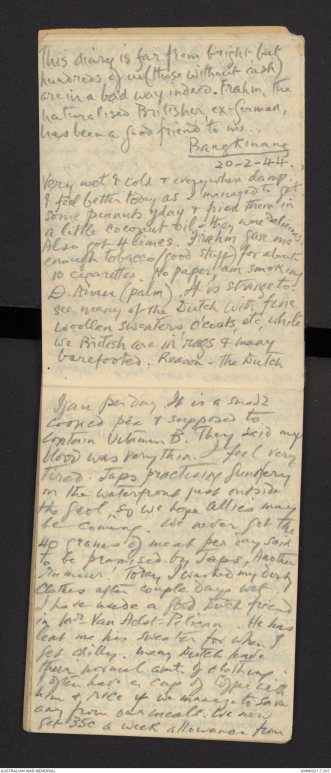 This diary is far from bright but
hundreds of us (those without cash)
are in a bad way indeed. Frahm, the
naturalised Britisher, ex-German,
has been a good friend to me..
Bangkinang
20-2-44.
Very wet & cold & everywhere damp.
I feel better today as I managed to get
some peanuts y'day & fried them in
a little coconut oil - they were delicious.
Also got 4 limes. Frahm gave me
enough tobacco (good stuff) for about
10 cigarettes. No paper, am smoking
(palm). It is strange to
see many of the Dutch with fine
woollen sweaters, O'coats, etc, while
we British are in rags & many
barefooted. Reason - the Dutch
per day. It is a small
cooked pea & supposed to
contain Vitamin B. They said my
blood was very thin. I feel very
tired. Japs practising gunnery
on the waterfront just outside
the gaol, so we hope Allies may
be coming. We never got the
40 grames of meat per day said
to be promised by Japs, Another
rumour. Today I washed my dirty
clothes after couple days wet.
I have made a good Dutch friend
in Mr. Van. He has
lent me his sweater for when I
get chilly. Many Dutch have
their normal amt. of clothing.
I often have a cup of coffee with
him & rice if we manage to save
any from our meals. We now
get 35c a week allowance from
AUSTRALIAN WAR MEMORIAL